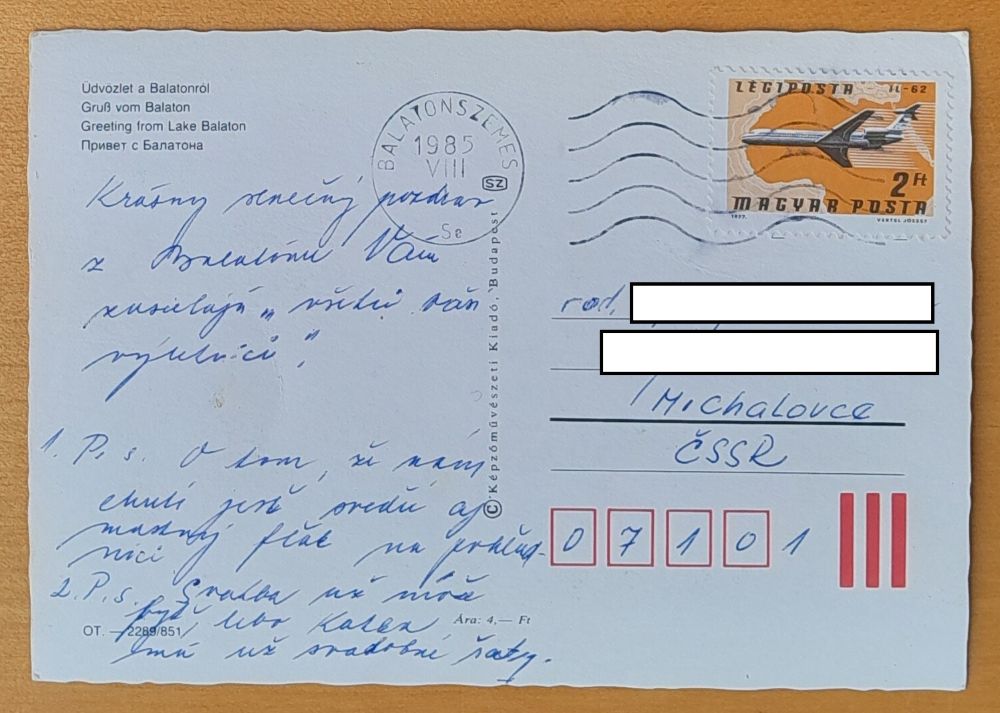 Üdvözlet a Balatonról
Gruß vom Balaton
Greeting from Lake Balaton
Привет с Балатона
BALATONSZEMES
1985
VIII
SZ
Se
LÉGIPOSTA IL-62
2 Ft
MAGYAR POSTA
1977. VERTEL JÓZSEF
Krásny slnečný pozdrav
z Balatónu Vám
zasielajú „všetci vaši
výletníci".
1. P. s. O tom, že nám
chutí jesť svedčí aj
mastný fľak na pohľad-
nici
2. P. s. Svatba už môže
byť lebo Katka
má už svadobné šaty.
© Képzőművészeti Kiadó, Budapest
OT. — 2289/851
Ára: 4,— Ft
rod.
Michalovce
ČSSR
0 7 1 0 1